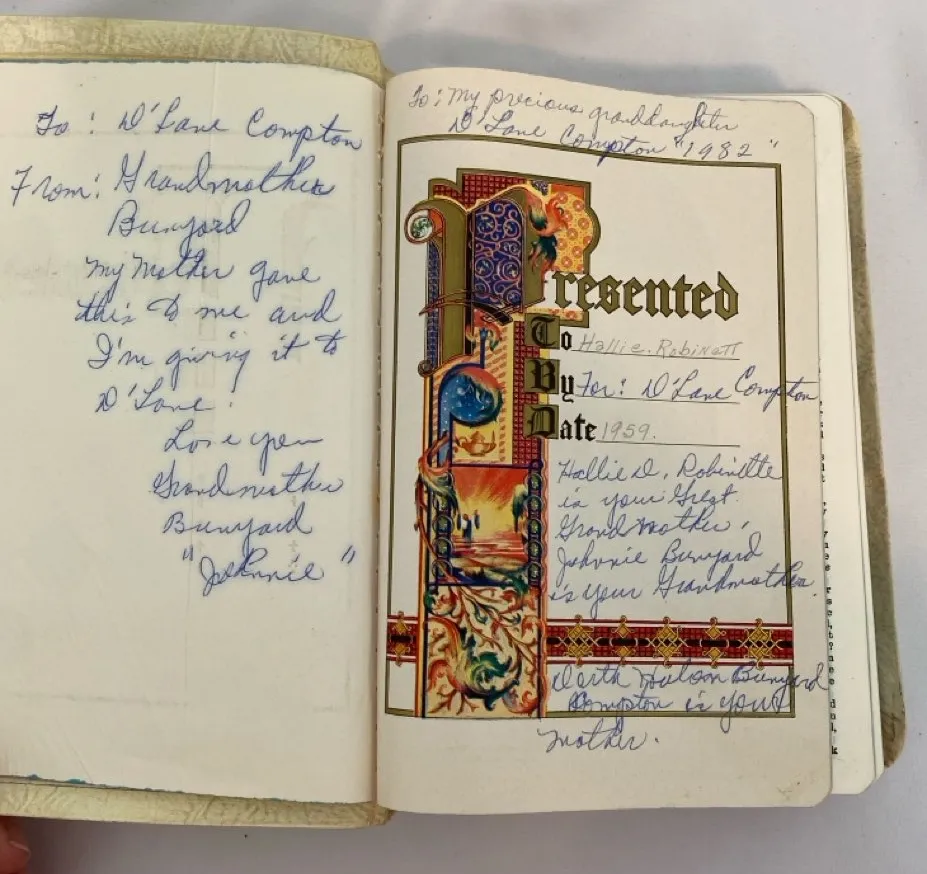 To: D'Lane Compton
From: Grandmother
Bunyard
My Mother gave
this to me and
I'm giving it to
D'Lane.
Love you
Grandmother
Bunyard
"Johnnie"
To: My precious granddaughter
D'Lane Compton "1982"
Presented
To Hallie. Robinett
By For: D'Lane Compton
Date 1959.
Hallie D. Robinette
is your Great
Grand Mother.
Johnnie Bunyard
is your Grandmother.
Bunyard
Compton is your
Mother.